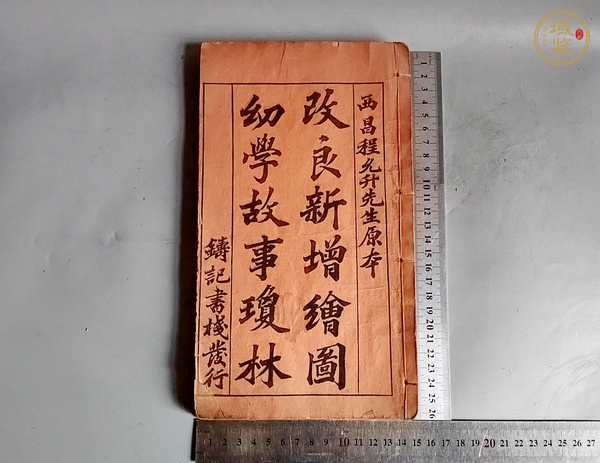 西昌程允升先生原本
改良新增繪圖
幼學故事瓊林
鑄記書棧發行
域鉴
1 2 3 4 5 6 7 8 9 10 11 12 13 14 15 16 17 18 19 20 21 22 23 24 25 26
1 2 3 4 5 6 7 8 9 10 11 12 13 14 15 16 17 18 19 20 21 22 23 24 25 26 27